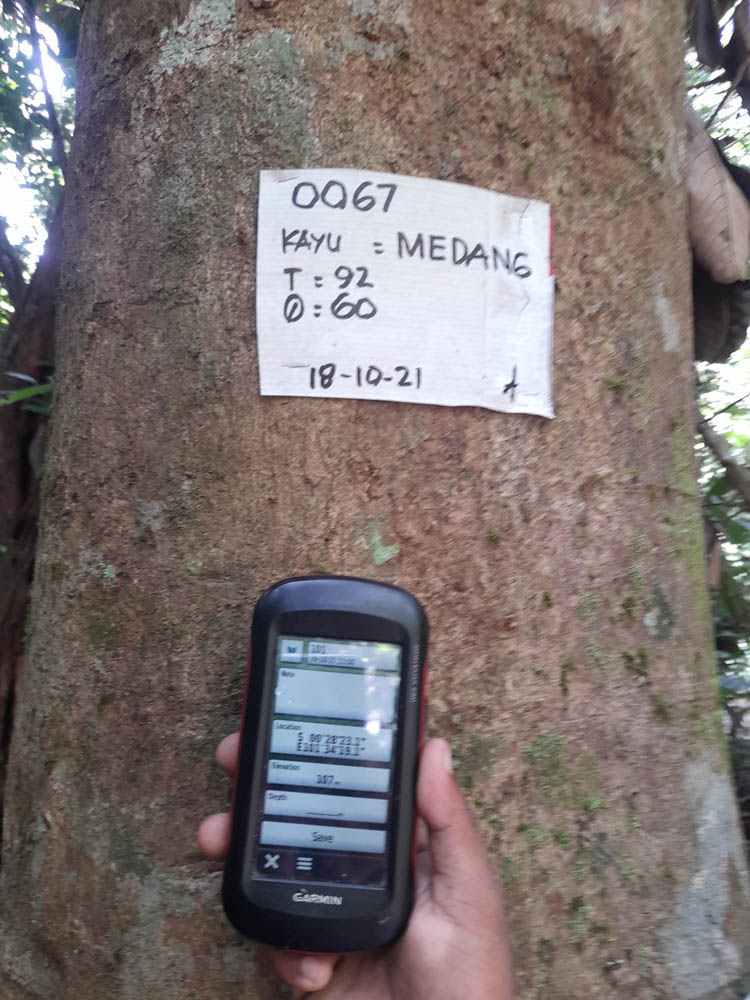 0067
KAYU = MEDANG
T : 92
Ø : 60
18-10-21
101
Note
Location
S 00°28'23.1"
E101°34'19.1"
Elevation
107m
Depth
Save
GARMIN